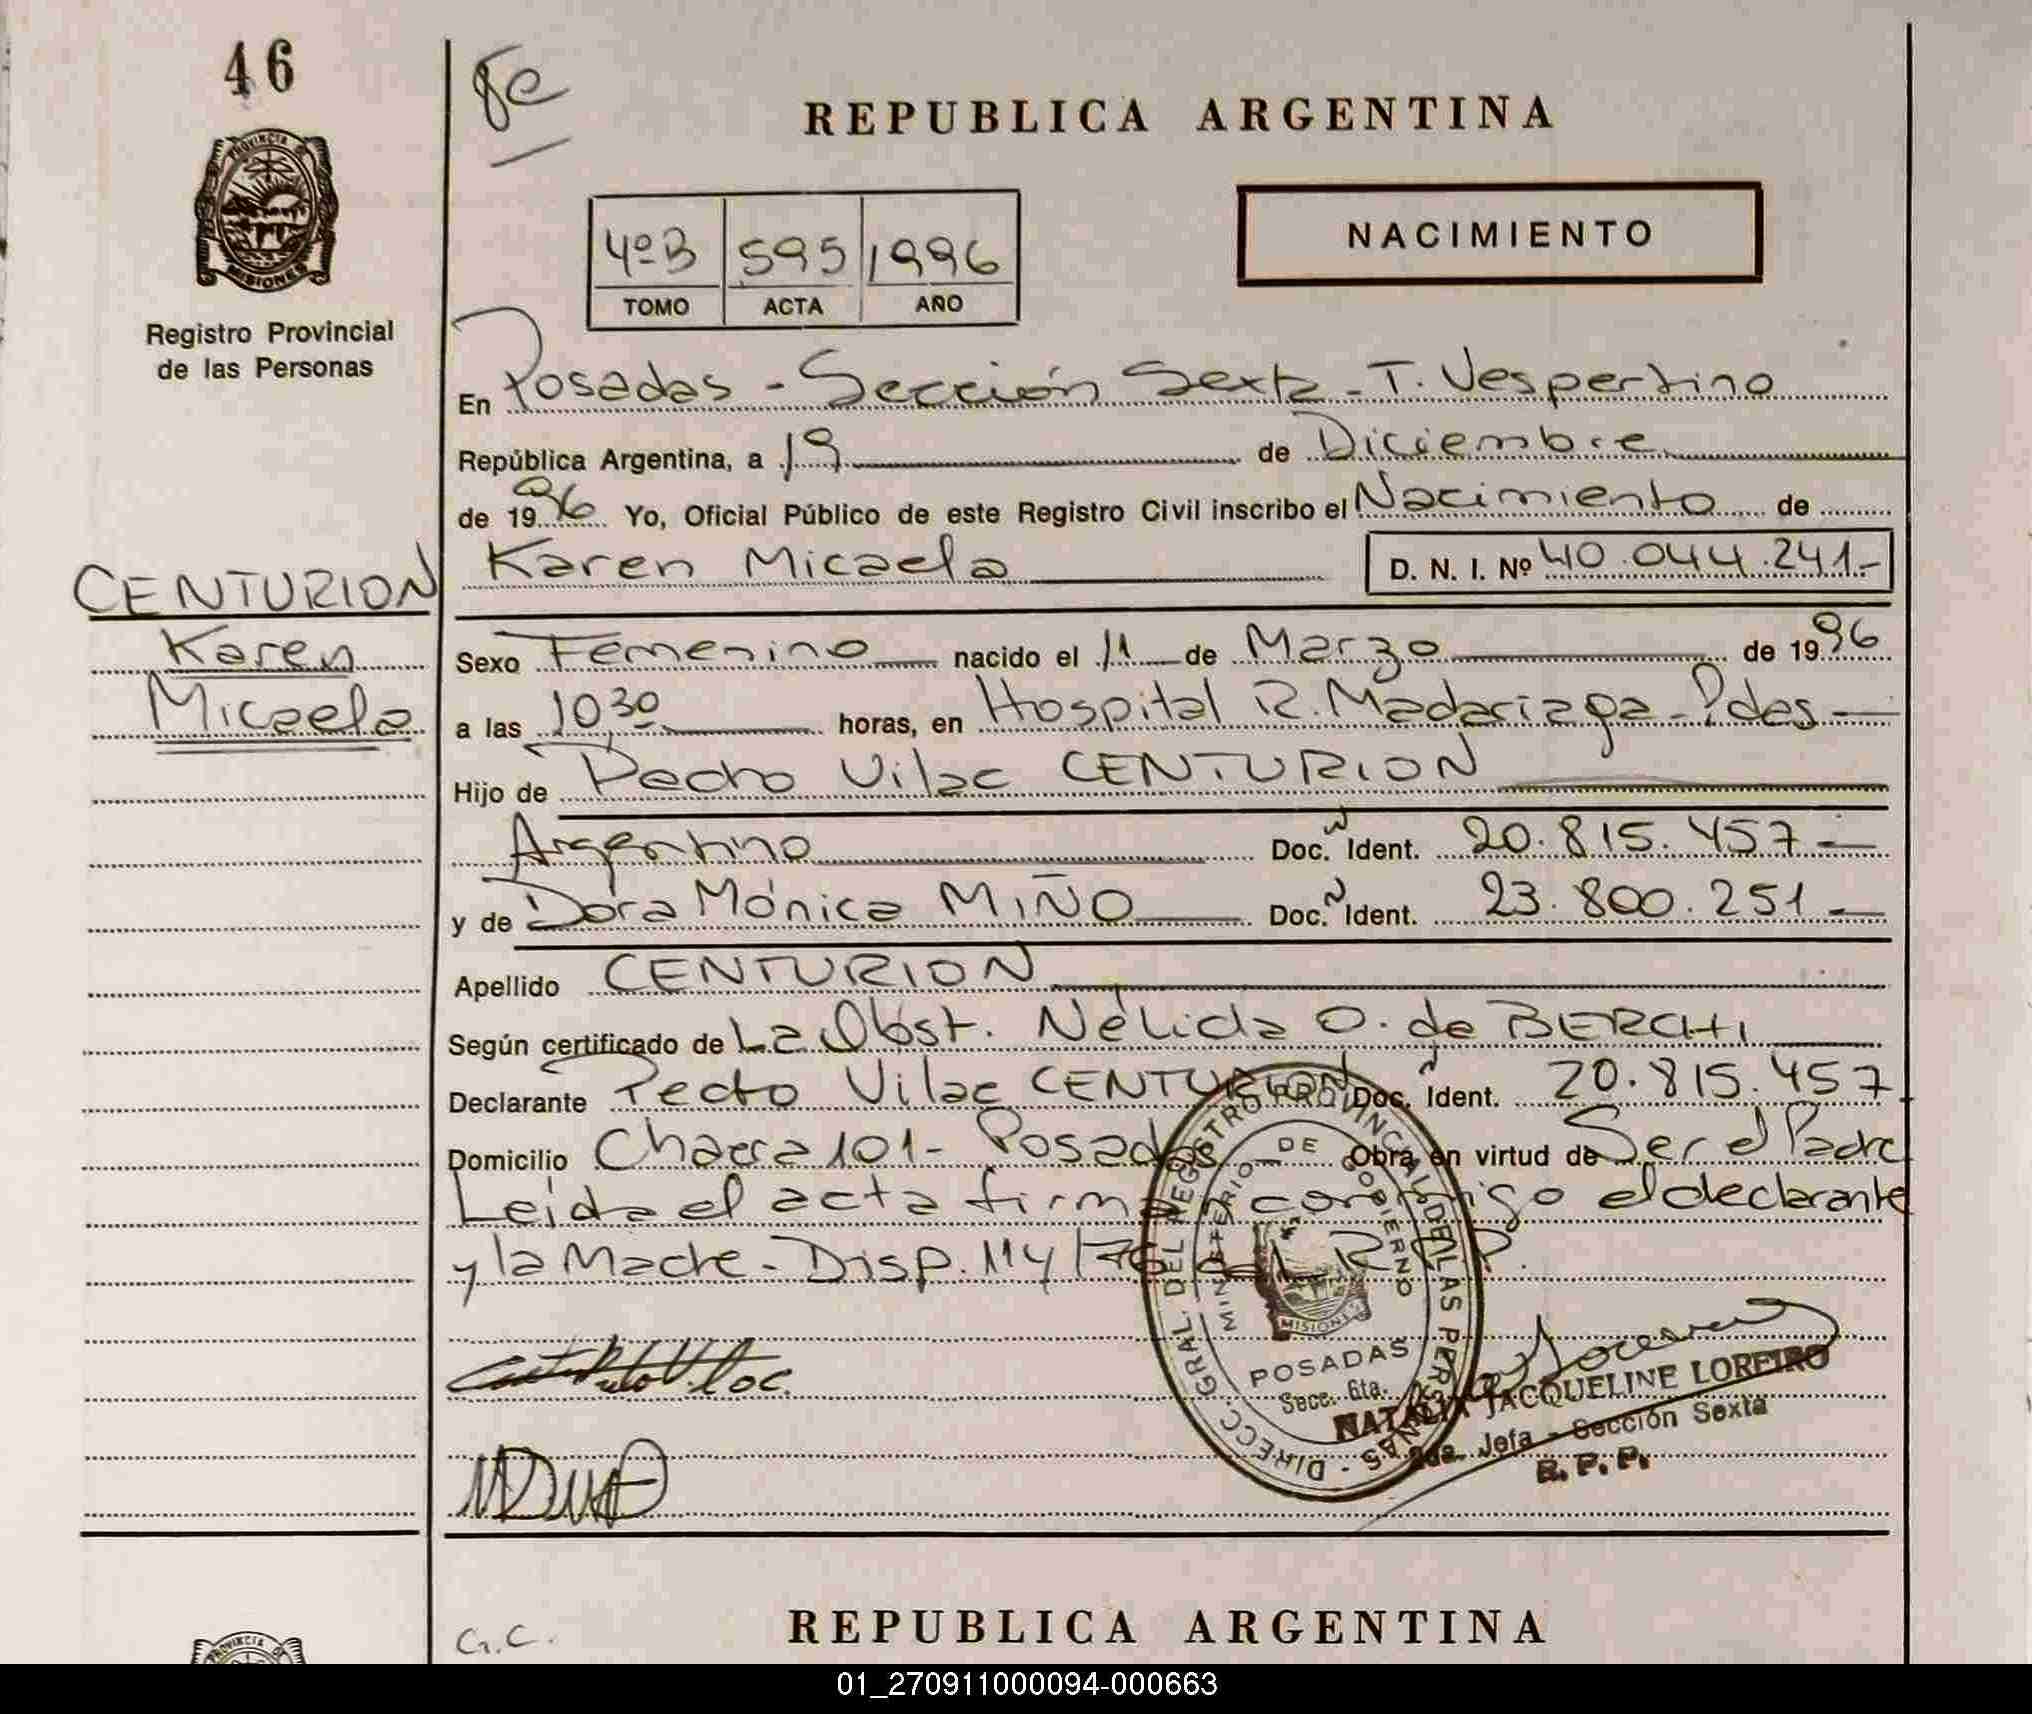 46
PROVINCIA D
MISIONES
Registro Provincial
de las Personas
REPUBLICA ARGENTINA
4ºB 595 1996
TOMO ACTA AÑO
NACIMIENTO
En Posadas - Sección Sexta - T. Vespertino
República Argentina, a 19 de Diciembre
de 1996 Yo, Oficial Público de este Registro Civil inscribo el Nacimiento de
Karen Micaela D. N. I. Nº 40.044.241.-
CENTURION
Karen
Micaela
Sexo Femenino nacido el 11 de Marzo de 1996
a las 10,30 horas, en Hospital R. Madariaga - Pdas -
Hijo de Pedro Vilac CENTURION
Argentino Doc. Ident. 20.815.457 -
y de Dora Mónica MIÑO Doc. Ident. 23.800.251 -
Apellido CENTURION
Según certificado de La Obst. Nélida O. de BERCHI
Declarante Pedro Vilac CENTURION Doc. Ident. 20.815.457
Domicilio Chacra 101 - Posadas Obra en virtud de Ser el Padre
Leída el acta firman conmigo el declarante
y la Madre - Disp. 114/76 del R.P.P.
DIRECC. GRAL. DEL REGISTRO PROVINCIAL DE LAS PERSONAS
MINISTERIO DE GOBIERNO
MISIONES
POSADAS
Secc. 6ta.
NATALIA JACQUELINE LOREIRO
2da. Jefa - Sección Sexta
R. P. P.
G.C.
REPUBLICA ARGENTINA
PROVINCIA D
01_270911000094-000663